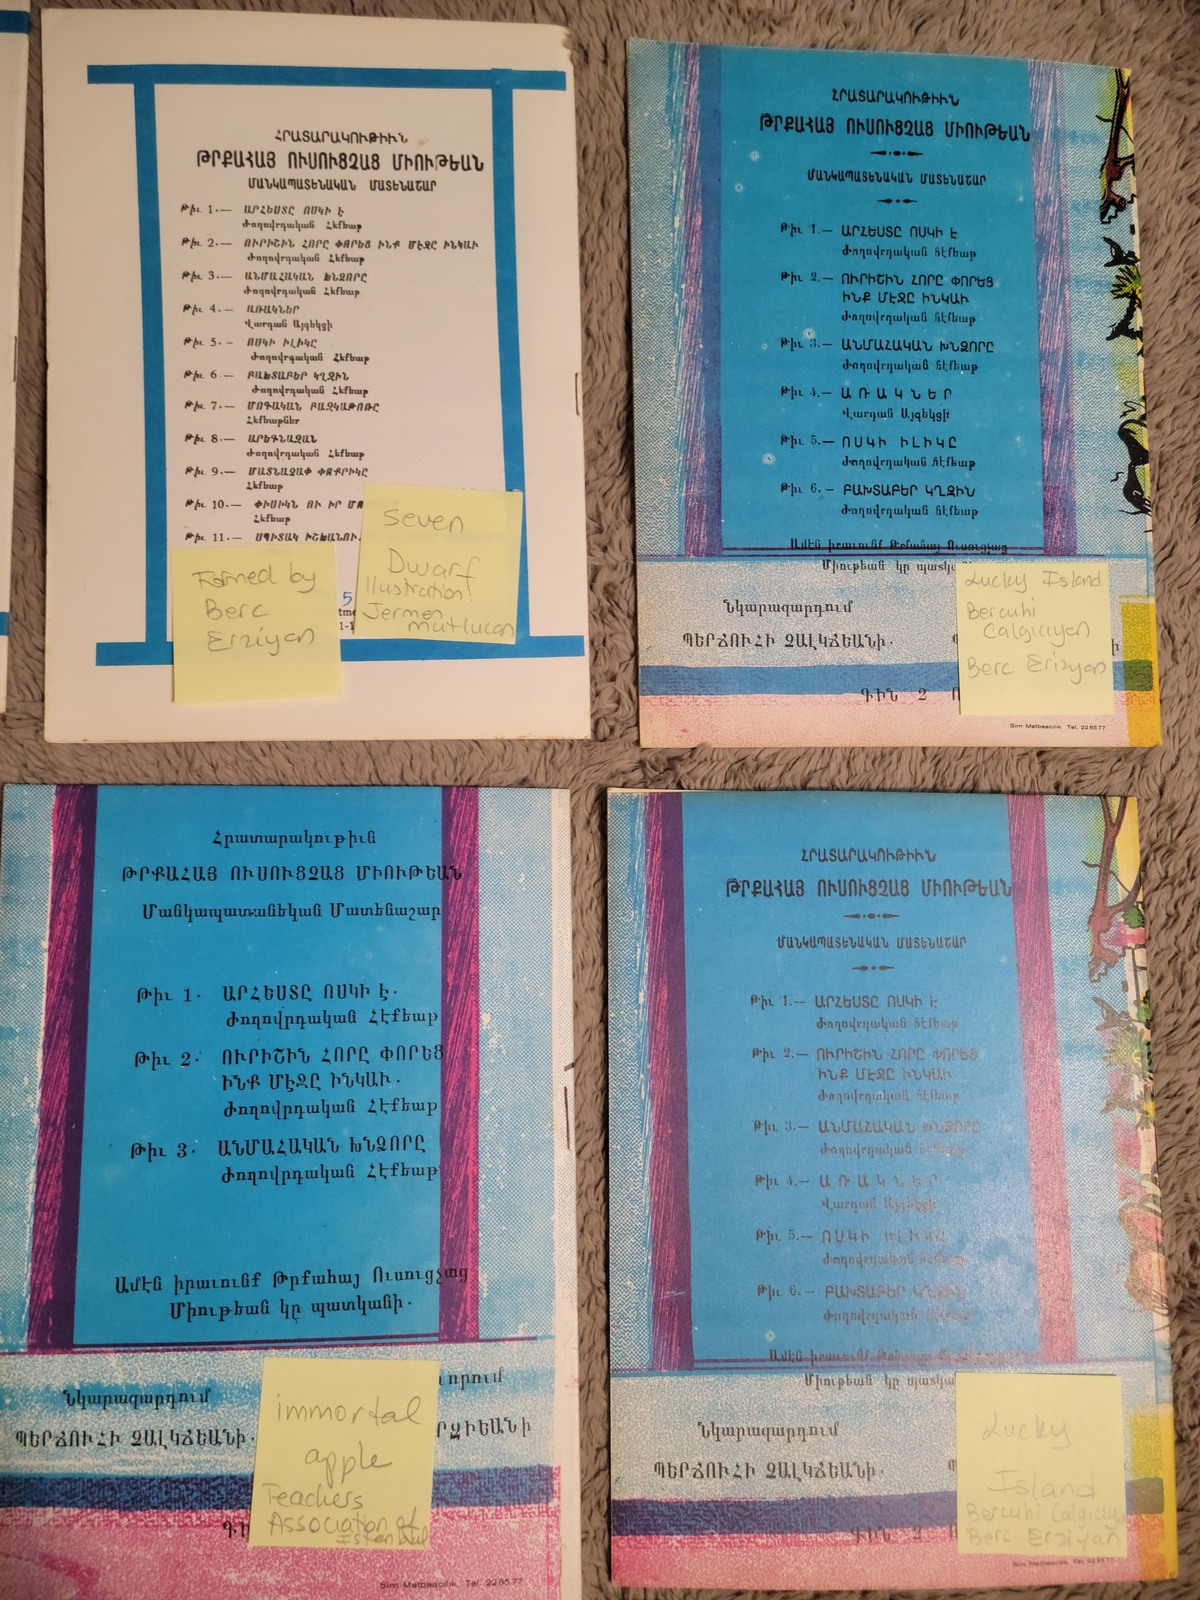 ՀՐԱՏԱՐԱԿՈՒԹԻՒՆ
ԹՐՔԱՀԱՅ ՈՒՍՈՒՑՉԱՑ ՄԻՈՒԹԵԱՆ
ՄԱՆԿԱՊԱՏԵՆԱԿԱՆ ՄԱՏԵՆԱՇԱՐ
Թիւ 1.— ԱՐՀԵՍՏԸ ՈՍԿԻ Է
Ժողովրդական Հեքեաթ
Թիւ 2.— ՈՒՐԻՇԻՆ ՀՈՐԸ ՓՈՐԵՑ ԻՆՔ ՄԷՋԸ ԻՆԿԱՒ
Ժողովրդական Հեքեաթ
Թիւ 3.— ԱՆՄԱՀԱԿԱՆ ԽՆՁՈՐԸ
Ժողովրդական Հեքեաթ
Թիւ 4.— ԱՌԱԿՆԵՐ
Վարդան Այգեկցի
Թիւ 5.— ՈՍԿԻ ԻԼԻԿԸ
Ժողովրդական Հեքեաթ
Թիւ 6.— ԲԱԽՏԱԲԵՐ ԿՂԶԻՆ
Ժողովրդական Հեքեաթ
Թիւ 7.— ՄՈԳԱԿԱՆ ԲԱԶԿԱԹՈՌԸ
Հեքեաթներ
Թիւ 8.— ԱՐԵԳՆԱԶԱՆ
Ժողովրդական Հեքեաթ
Թիւ 9.— ՄԱՏՆԱՉԱՓ ՓՈՔՐԻԿԸ
Հեքեաթ
Թիւ 10.— ՓԻՍԻԿՆ ՈՒ ԻՐ
Հեքեաթ
Թիւ 11.— ՍՊԻՏԱԿ
5
Formed by
Berc
Erziyan
Seven
Dwarf
Illustration!
Jermen
mutlucan
ՀՐԱՏԱՐԱԿՈՒԹԻՒՆ
ԹՐՔԱՀԱՅ ՈՒՍՈՒՑՉԱՑ ՄԻՈՒԹԵԱՆ
ՄԱՆԿԱՊԱՏԵՆԱԿԱՆ ՄԱՏԵՆԱՇԱՐ
Թիւ 1.— ԱՐՀԵՍՏԸ ՈՍԿԻ Է
Ժողովրդական հէքեաթ
Թիւ 2.— ՈՒՐԻՇԻՆ ՀՈՐԸ ՓՈՐԵՑ
ԻՆՔ ՄԷՋԸ ԻՆԿԱՒ
Ժողովրդական հէքեաթ
Թիւ 3.— ԱՆՄԱՀԱԿԱՆ ԽՆՁՈՐԸ
Ժողովրդական հէքեաթ
Թիւ 4.— ԱՌԱԿՆԵՐ
Վարդան Այգեկցի
Թիւ 5.— ՈՍԿԻ ԻԼԻԿԸ
Ժողովրդական հէքեաթ
Թիւ 6.— ԲԱԽՏԱԲԵՐ ԿՂԶԻՆ
Ժողովրդական հէքեաթ
Ամէն իրաւունք Թրքահայ Ուսուցչաց
Միութեան կը
Նկարազարդում
ՊԵՐՃՈՒՀԻ ՉԱԼԿՃԵԱՆԻ.
ԳԻՆ 2
Sim Matbaacilik Tel. 228577
Lucky Island
Bercuhi
Calgiciyan
Berc Erizyan
Հրատարակութիւն
ԹՐՔԱՀԱՅ ՈՒՍՈՒՑՉԱՑ ՄԻՈՒԹԵԱՆ
Մանկապատանեկան Մատենաշար
Թիւ 1. ԱՐՀԵՍՏԸ ՈՍԿԻ Է.
Ժողովրդական Հէքեաթ
Թիւ 2. ՈՒՐԻՇԻՆ ՀՈՐԸ ՓՈՐԵՑ
ԻՆՔ ՄԷՋԸ ԻՆԿԱՒ.
Ժողովրդական Հէքեաթ
Թիւ 3. ԱՆՄԱՀԱԿԱՆ ԽՆՁՈՐԸ
Ժողովրդական Հէքեաթ
Ամէն իրաւունք Թրքահայ Ուսուցչաց
Միութեան կը պատկանի.
Նկարազարդում
ՊԵՐՃՈՒՀԻ ՉԱԼԿՃԵԱՆԻ.
Sim Matbaacilik Tel. 228577
immortal
apple
Teachers
Association of
Istanbul
ՀՐԱՏԱՐԱԿՈՒԹԻՒՆ
ԹՐՔԱՀԱՅ ՈՒՍՈՒՑՉԱՑ ՄԻՈՒԹԵԱՆ
ՄԱՆԿԱՊԱՏԵՆԱԿԱՆ ՄԱՏԵՆԱՇԱՐ
Թիւ 1.— ԱՐՀԵՍՏԸ ՈՍԿԻ Է
Ժողովրդական հէքեաթ
Թիւ 2.— ՈՒՐԻՇԻՆ ՀՈՐԸ ՓՈՐԵՑ
ԻՆՔ ՄԷՋԸ ԻՆԿԱՒ
Ժողովրդական հէքեաթ
Թիւ 3.— ԱՆՄԱՀԱԿԱՆ ԽՆՁՈՐԸ
Ժողովրդական հէքեաթ
Թիւ 4.— ԱՌԱԿՆԵՐ
Վարդան Այգեկցի
Թիւ 5.— ՈՍԿԻ ԻԼԻԿԸ
Ժողովրդական հէքեաթ
Թիւ 6.— ԲԱԽՏԱԲԵՐ ԿՂԶԻՆ
Ժողովրդական հէքեաթ
Ամէն իրաւունք Թրքահայ Ուսուցչաց
Միութեան կը
Նկարազարդում
ՊԵՐՃՈՒՀԻ ՉԱԼԿՃԵԱՆԻ.
ԳԻՆ 2
Sim Matbaacilik Tel. 228577
Lucky
Island
Bercuhi
Berc Erziyan